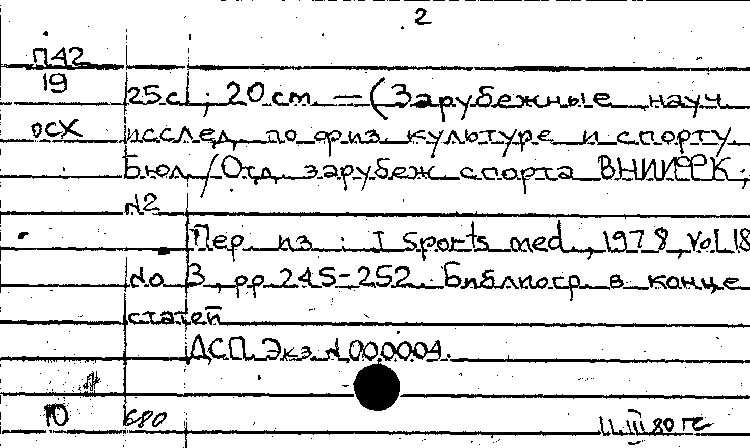 2
П42
19
25с.; 20 см. — (Зарубежные науч.
ОСХ исслед. по физ. культуре и спорту.
Бюл. / Отд. зарубеж спорта ВНИИФК;
№2
Пер. из: J Sports med., 1978, vol 18
No 3, pp. 245-252. Библиогр. в конце
статей
ДСП. Экз. №000004.
10 680 11.III 80 г